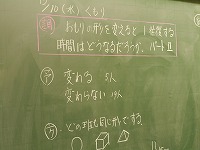 1/10 (水) くもり
おもりの形を変えると1往復する
時間はどうなるだろうか。パートⅡ
変わる 5人
変わらない 19人
どの班も同じ形でする。